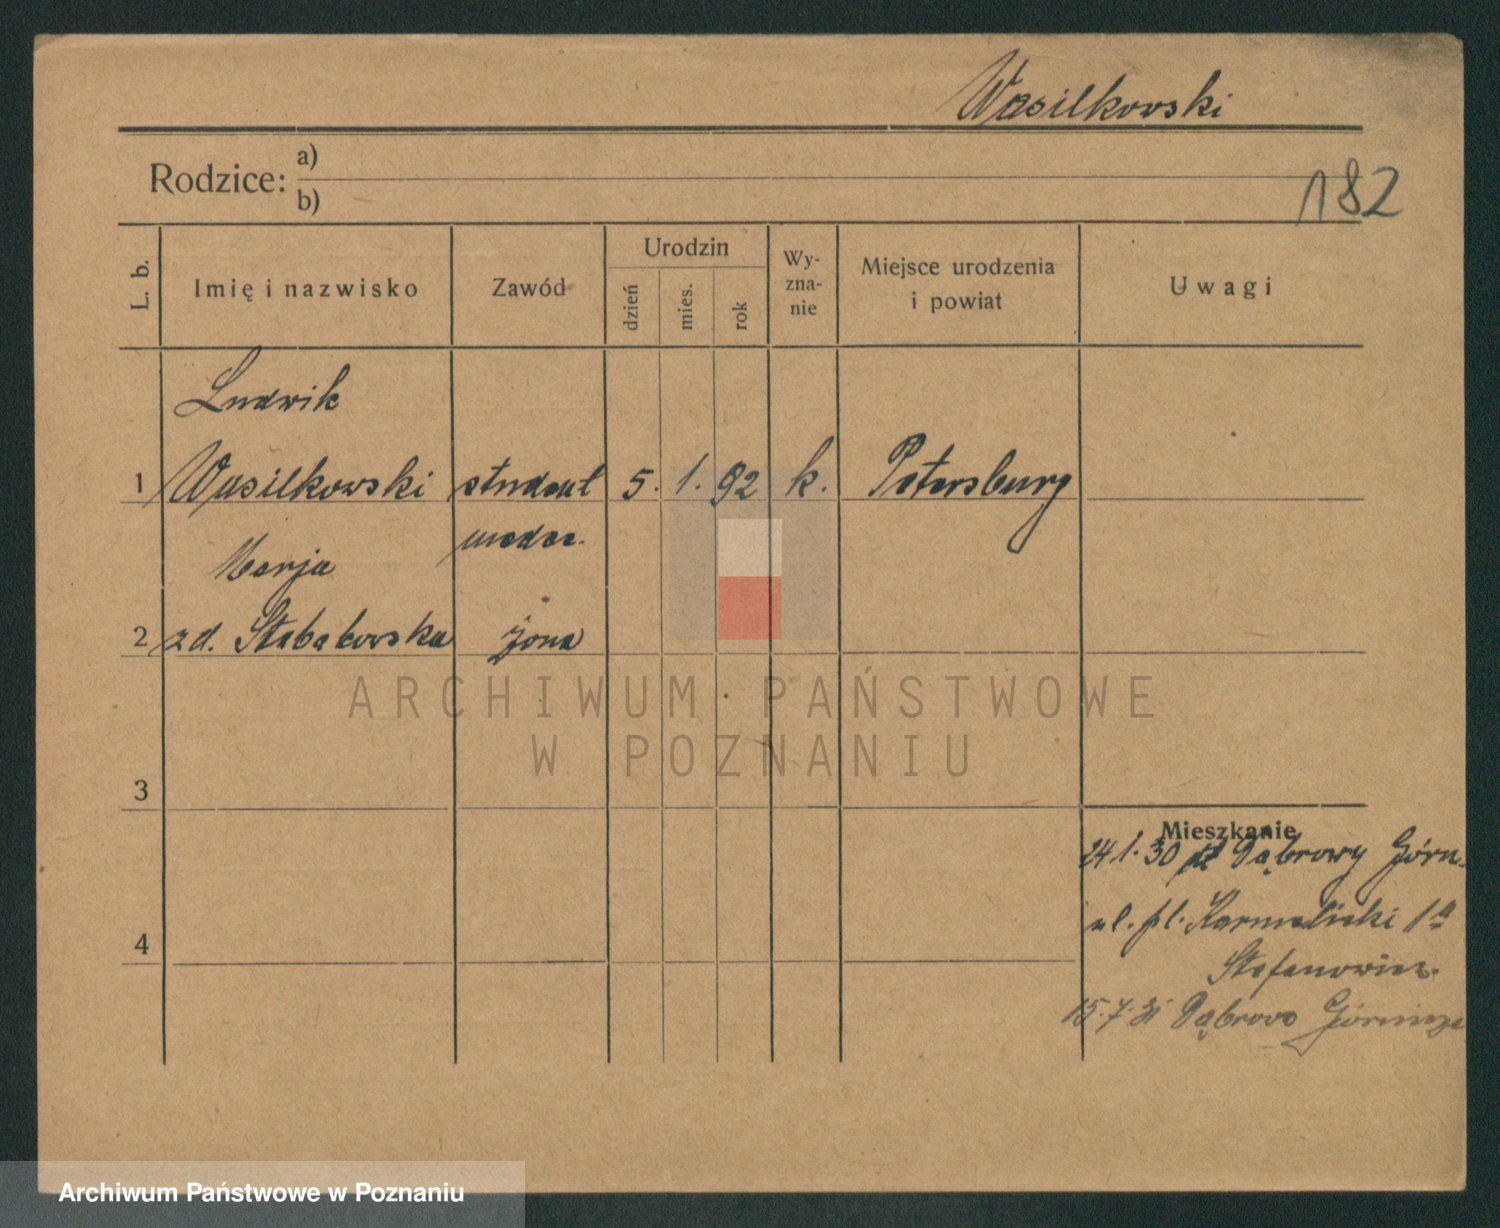 Wasilkowski
Rodzice: a)
b)
182
L. b.
Imię i nazwisko
Zawód
Urodzin
dzień
mies.
rok
Wy-
zna-
nie
Miejsce urodzenia
i powiat
Uwagi
Ludwik
1 Wasilkowski student 5. 1. 92 k. Petersburg
Marja
2 zd. żona
ARCHIWUM PAŃSTWOWE
W POZNANIU
3
Mieszkanie
24 1. 30 Dąbrowy Górn.
ul. pl. Karmelicki 1a
4
Stefanowicz
15.7.31 Dąbrowa Górnicza
Archiwum Państwowe w Poznaniu